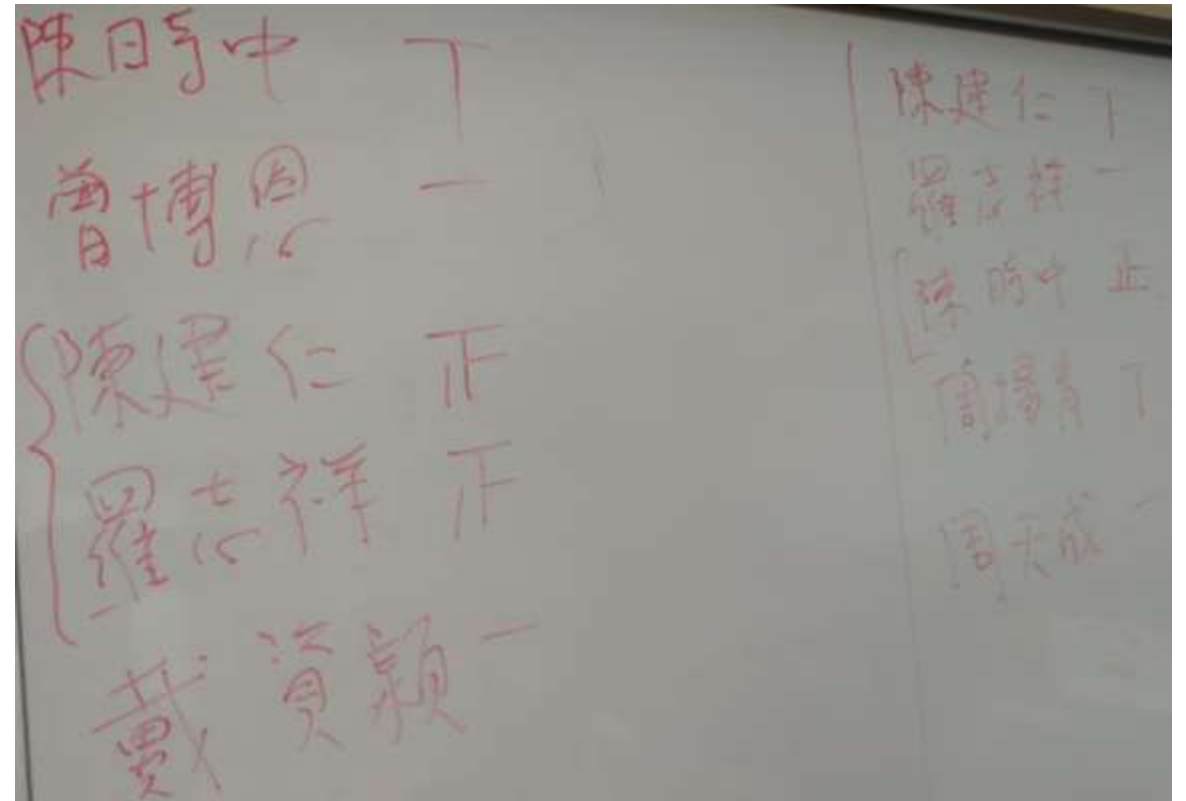 陳時中 丅
曾博恩 一
陳建仁 正
羅志祥 正
戴資穎 一
陳建仁 丅
羅志祥 一
陳時中 止
周揚青 丅
周天成 一